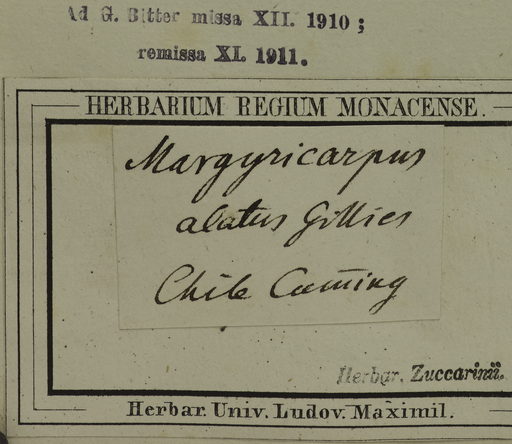 Ad G. Bitter missa XII. 1910 ;
remissa XI. 1911.
HERBARIUM REGIUM MONACENSE.
Margyricarpus
alatus Gillies
Chile Cuming
Herbar. Zuccarinii.
Herbar. Univ. Ludov. Maximil.